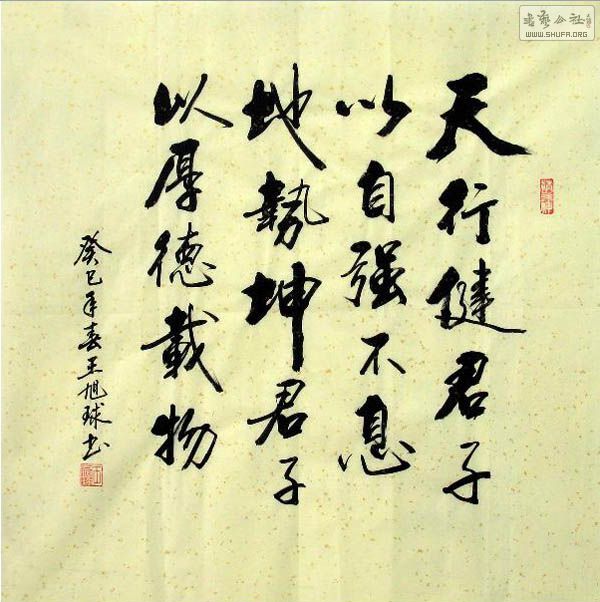 天行健君子
以自强不息
地勢坤君子
以厚德載物
癸巳年春王旭球书
书艺公社
WWW.SHUFA.ORG